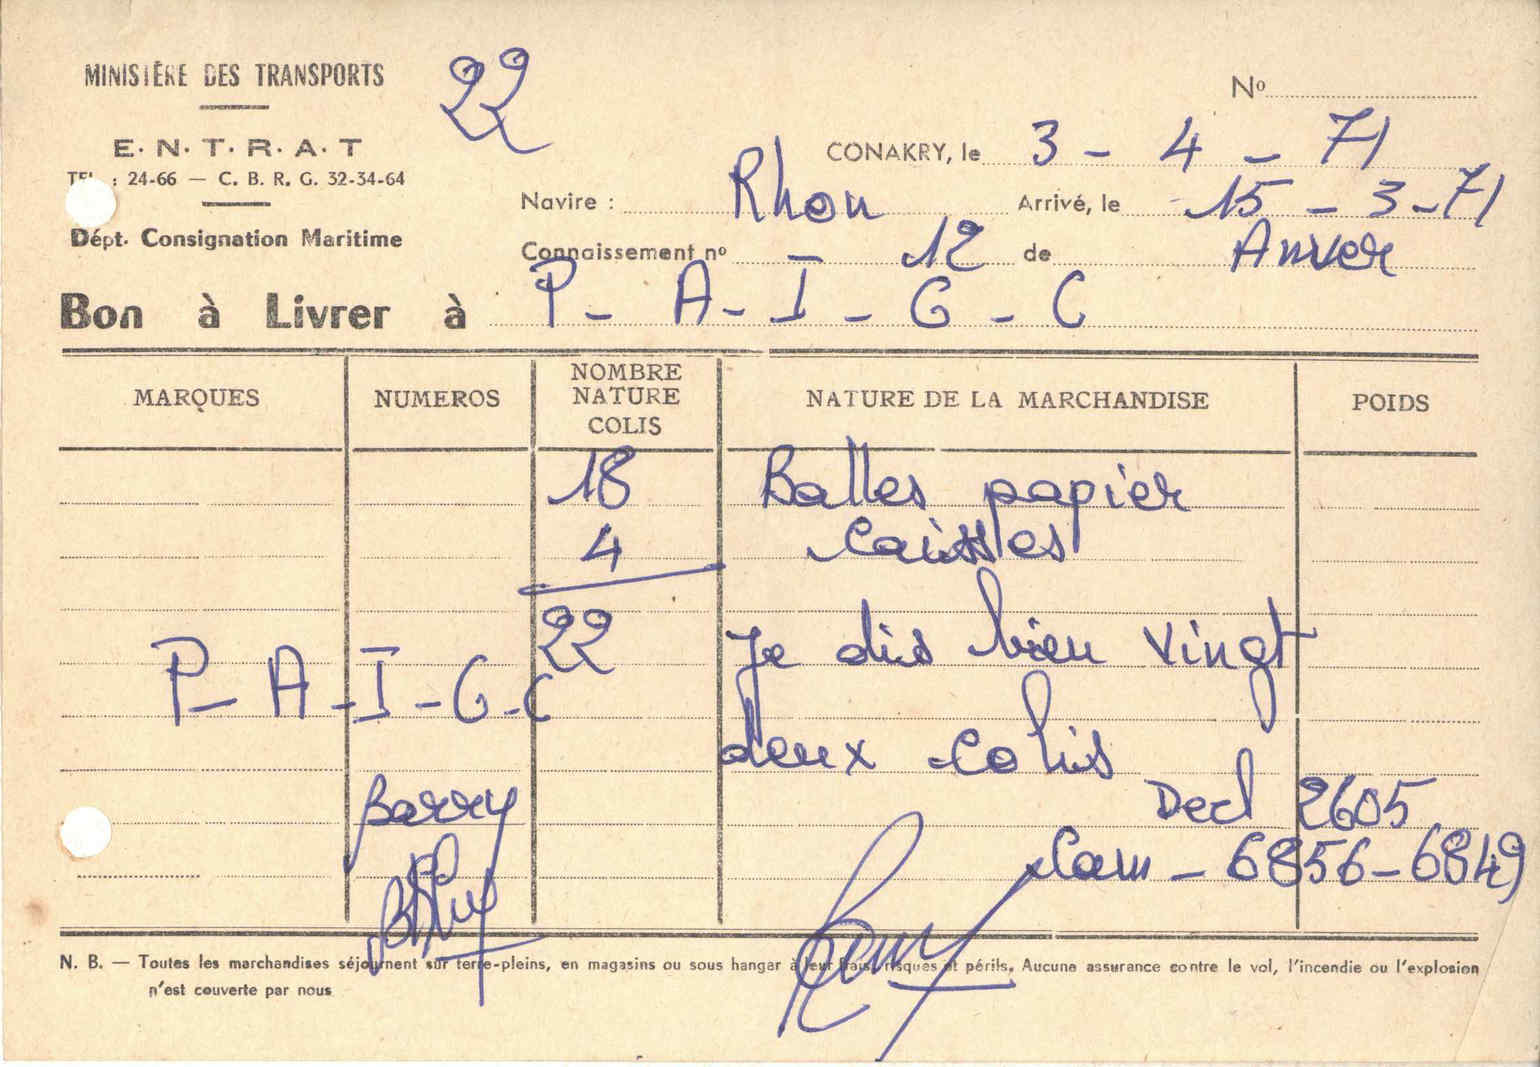 MINISTÈRE DES TRANSPORTS
22
Nº
E. N. T. R. A. T
CONAKRY, le 3 - 4 - 71
TEL : 24-66 — C. B. R. G. 32-34-64
Navire : Rhon Arrivé, le 15 - 3 - 71
Dépt. Consignation Maritime
Connaissement nº 12 de Anver
Bon à Livrer à P - A - I - G - C
MARQUES NUMEROS NOMBRE NATURE COLIS NATURE DE LA MARCHANDISE POIDS
18 Balles papier
4 Caisses
22 Je dis bien vingt
P - A - I - G - C
deux colis
Barry Decl 2605
Cam - 6856 - 6849
N. B. — Toutes les marchandises séjournent sur terre-pleins, en magasins ou sous hangar à leur frais, risques et périls. Aucune assurance contre le vol, l'incendie ou l'explosion
n'est couverte par nous